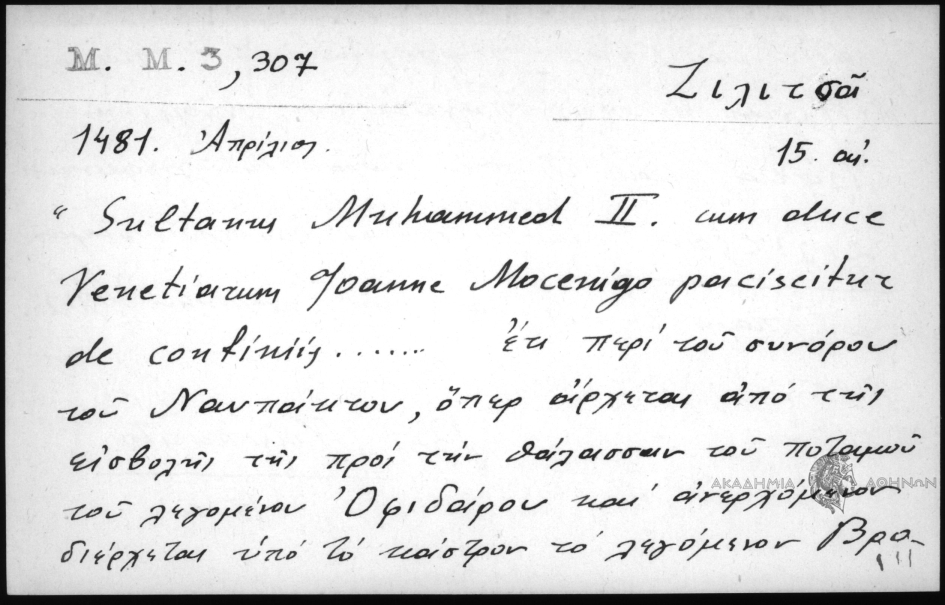 M. M. 3, 307
Ζιλιτσᾶ
1481. Ἀπρίλιος.
15. αἰ.
" Sultanus Muhammed II. cum duce
Venetiarum Joanne Mocenigo paciscitur
de confiniis ....... ἔτι περί τοῦ συνόρου
τοῦ Ναυπάκτου, ὅπερ ἄρχεται ἀπό τῆς
εἰσβολῆς τῆς πρός τήν θάλασσαν τοῦ ποταμοῦ
ΑΚΑΔΗΜΙΑ ΑΘΗΝΩΝ
τοῦ λεγομένου Ὀφιδάρου καί ἀνερχόμενον
διέρχεται ὑπό τό κάστρον τό λεγόμενον Βρα-